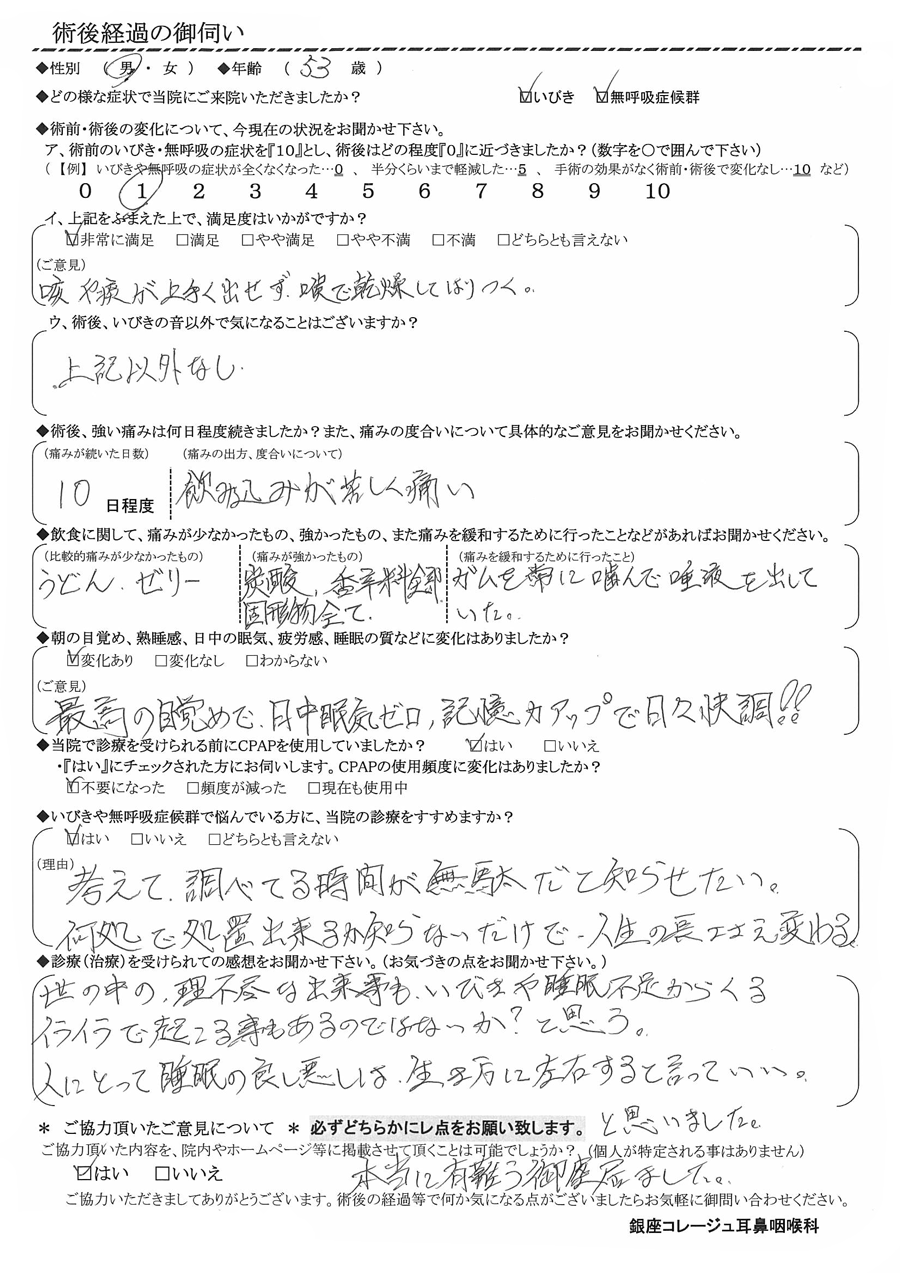 術後経過の御伺い
◆性別 （ 男 ・ 女 ） ◆年齢 （ 53 歳 ）
◆どの様な症状で当院にご来院いただきましたか？ ☑いびき ☑無呼吸症候群
◆術前・術後の変化について、今現在の状況をお聞かせ下さい。
ア、術前のいびき・無呼吸の症状を『10』とし、術後はどの程度『0』に近づきましたか？（数字を〇で囲んで下さい）
（【例】 いびきや無呼吸の症状が全くなくなった…0 、 半分くらいまで軽減した…5 、 手術の効果がなく術前・術後で変化なし…10 など）
0 1 2 3 4 5 6 7 8 9 10
イ、上記をふまえた上で、満足度はいかがですか？
☑非常に満足 □満足 □やや満足 □やや不満 □不満 □どちらとも言えない
（ご意見）
咳や痰が上手く出せず、喉で乾燥してはりつく。
ウ、術後、いびきの音以外で気になることはございますか？
上記以外なし.
◆術後、強い痛みは何日程度続きましたか？また、痛みの度合いについて具体的なご意見をお聞かせください。
（痛みが続いた日数） （痛みの出方、度合いについて）
10 日程度 飲み込みが苦しく痛い
◆飲食に関して、痛みが少なかったもの、強かったもの、また痛みを緩和するために行ったことなどがあればお聞かせください。
（比較的痛みが少なかったもの） （痛みが強かったもの） （痛みを緩和するために行ったこと）
うどん、ゼリー 炭酸、香辛料全部 ガムを常に噛んで唾液を出して
固形物全て. いた。
◆朝の目覚め、熟睡感、日中の眠気、疲労感、睡眠の質などに変化はありましたか？
☑変化あり □変化なし □わからない
（ご意見）
最高の目覚めで、日中眠気ゼロ、記憶力アップで日々快調!!
◆当院で診療を受けられる前にCPAPを使用していましたか？ ☑はい □いいえ
・『はい』にチェックされた方にお伺いします。CPAPの使用頻度に変化はありましたか？
☑不要になった □頻度が減った □現在も使用中
◆いびきや無呼吸症候群で悩んでいる方に、当院の診療をすすめますか？
☑はい □いいえ □どちらとも言えない
（理由）
考えて、調べてる時間が無駄だと知らせたい。
何処で処置出来るか知らないだけで、人生の長ささえ変わる。
◆診療（治療）を受けられての感想をお聞かせ下さい。（お気づきの点をお聞かせ下さい。）
世の中の、理不尽な出来事も、いびきや睡眠不足からくる
イライラで起こる事もあるのではないか？と思う。
人にとって睡眠の良し悪しは、生き方に左右すると言っていい。
と思いました。
＊ ご協力頂いたご意見について ＊ 必ずどちらかにレ点をお願い致します。
ご協力頂いた内容を、院内やホームページ等に掲載させて頂くことは可能でしょうか？（個人が特定される事はありません）
☑はい □いいえ 本当に有難う御座居ました。
ご協力いただきましてありがとうございます。術後の経過等で何か気になる点がございましたらお気軽に御問い合わせください。
銀座コレージュ耳鼻咽喉科